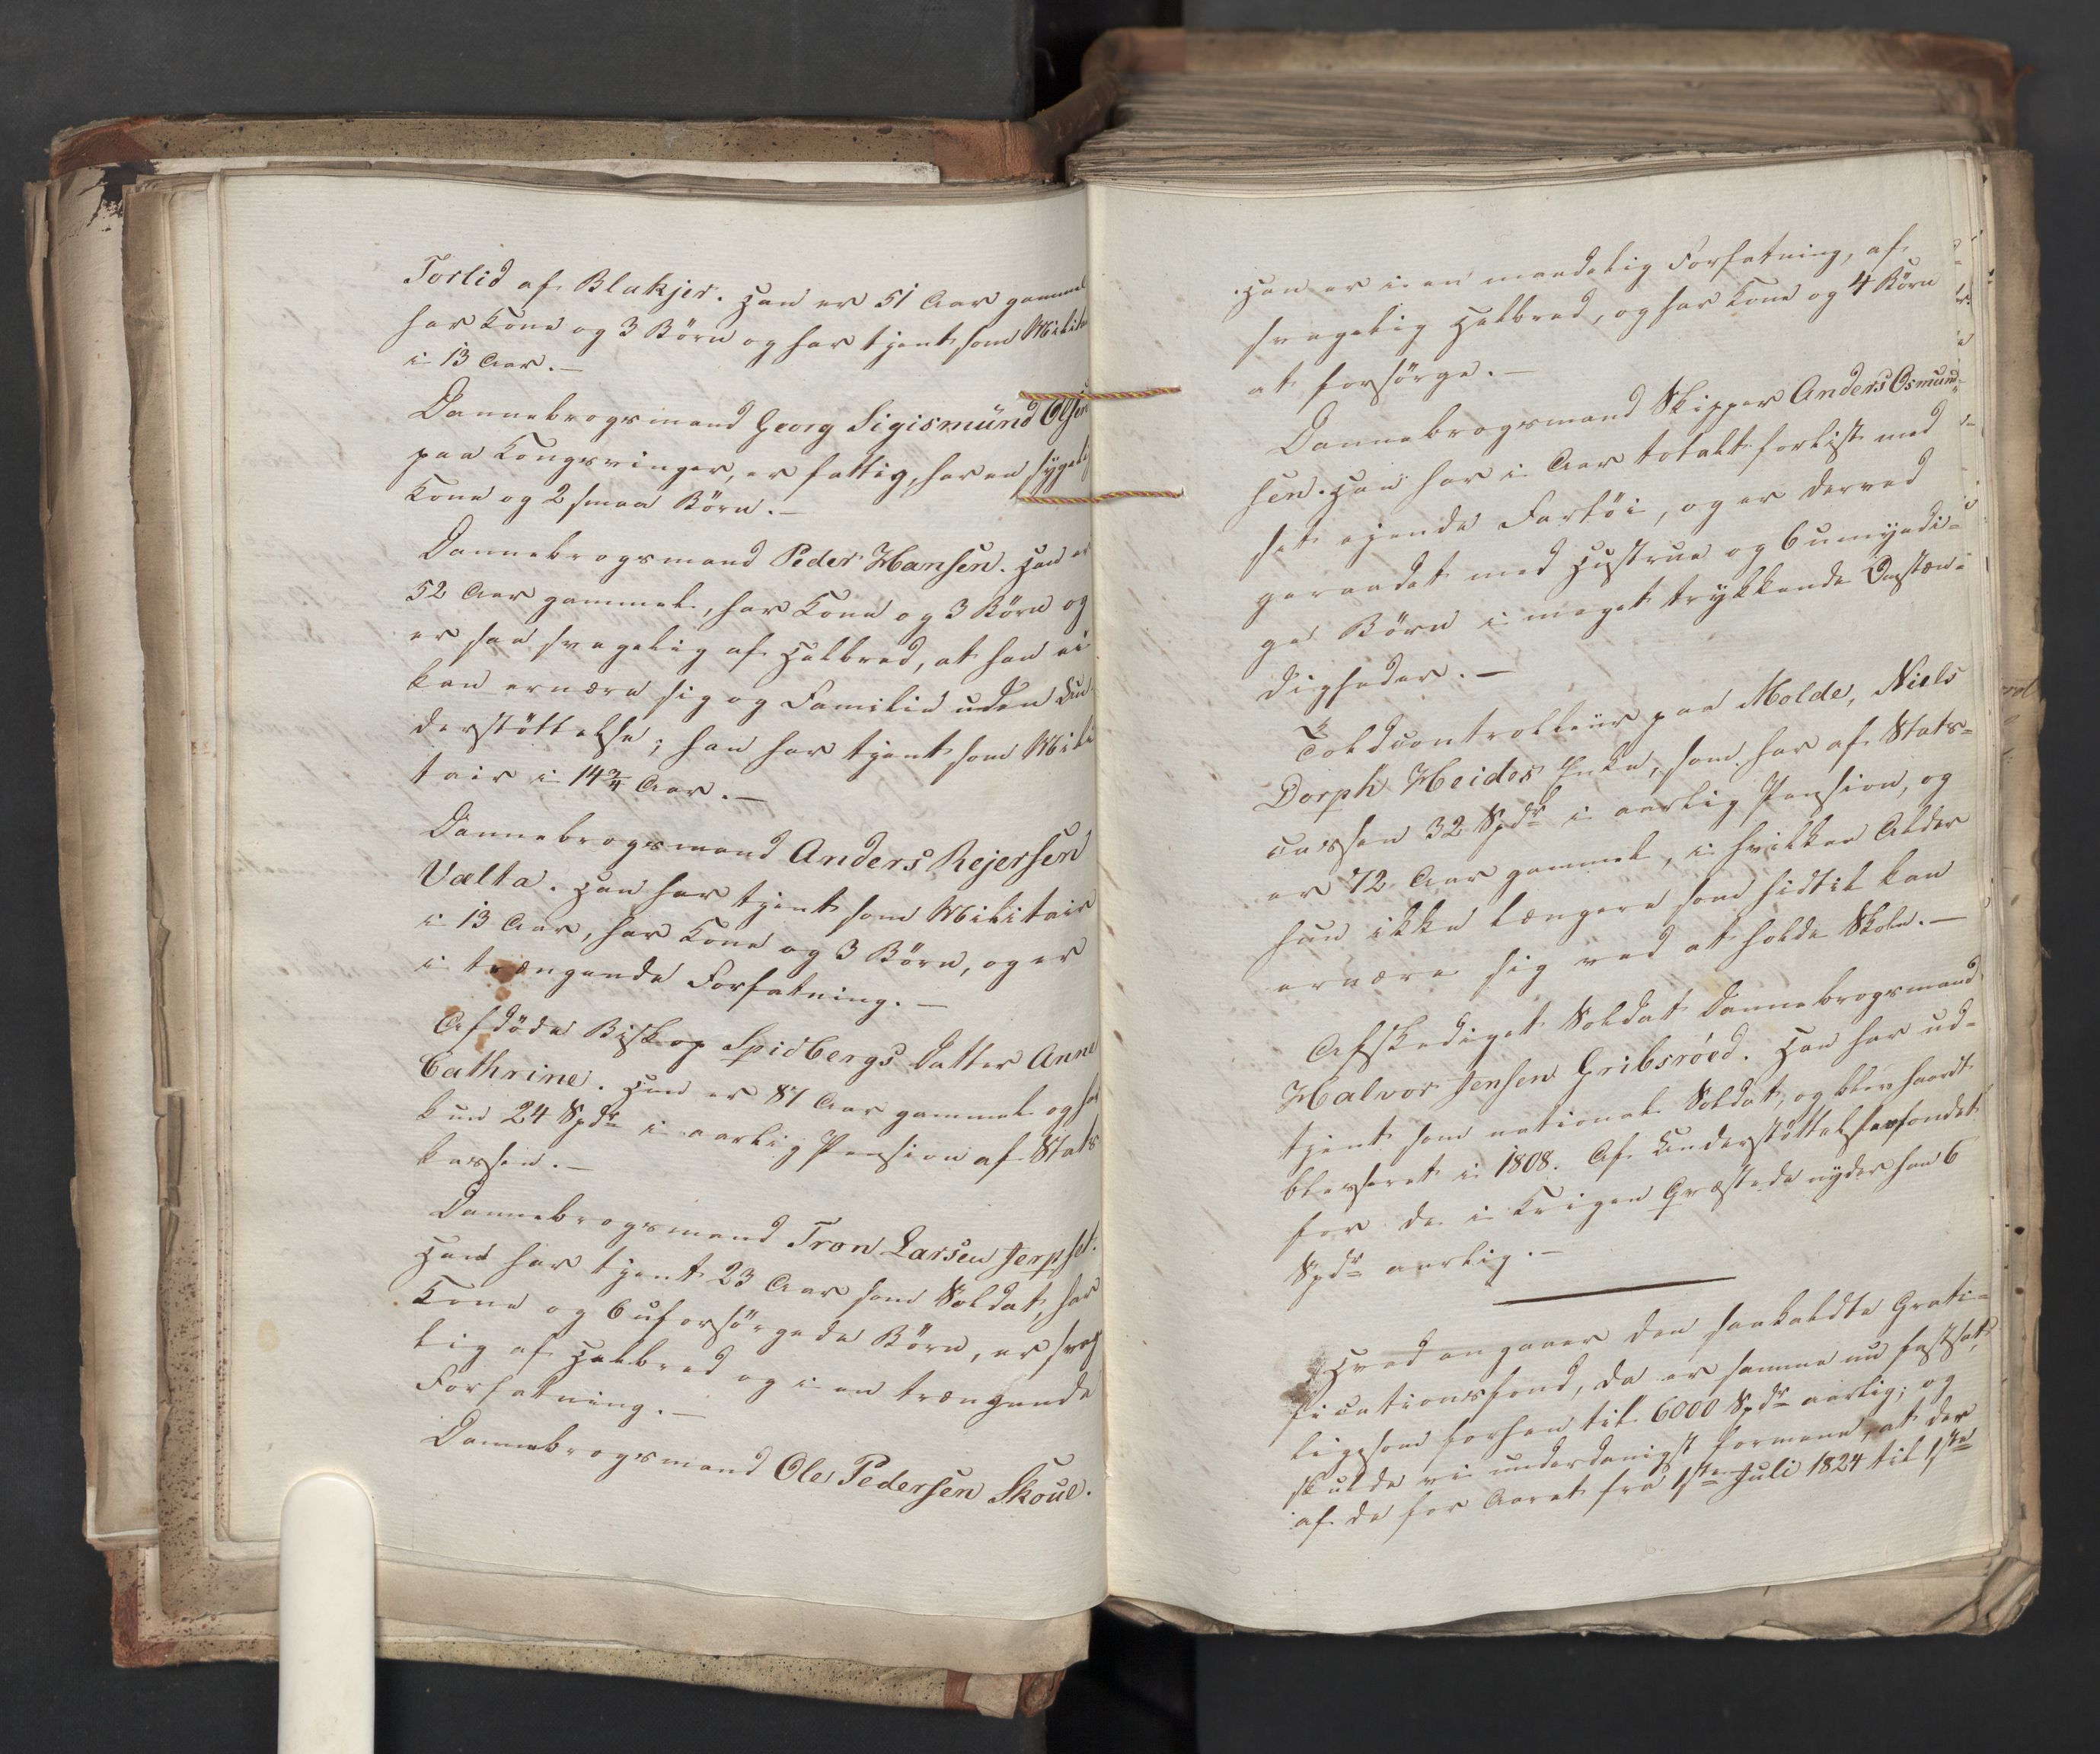 Torlid af Blakjer. Han er 51 Aar gammel
har Kone og 3 Börn og har tjent som Milita
i 13 Aar.—
Dannebrogsmand Georg Sigismund Olsen
paa Kongsvinger, er fattig, har en sygelig
Kone og 2 smaa Börn.—
Dannebrogsmand Peder Hansen. Han er
52 Aar gammel, har Kone og 3 Börn og
er saa svagelig af Helbred, at han ei
kan ernære sig og Familie uden Un-
derstöttelse; han har tjent som Mili
tair i 14 3/4 Aar.—
Dannebrogsmand Anders Rejersen
Vælta. Han har tjent som Militair
i 13 Aar, har Kone og 3 Börn, og er
i trængende Forfatning.—
Afdöde Biskop Spidbergs Datter Anne
Cathrine. Hun er 87 Aar gammel og har
kun 24 Spdr i aarlig Pension af Stats
kassen.—
Dannebrogsmand Tron Larsen Jerpset.
Han har tjent 23 Aar som Soldat, har
Kone og 6 uforsörgede Börn, er svag
lig af Helbred og i en trængende
Forfatning.—
Dannebrogsmand Ole Pedersen Skoue.
Han er i en maadelig Forfatning, af
svagelig Helbred, og har Kone og 4 Börn
at forsörge.—
Dannebrogsmand Skipper Anders Osmund=
sen. Han har i Aar totalt forlist med
sit ejende Fartöi, og er derved
geraadet med Hustrue og 6 umyndi=
ge Börn i meget trykkende Omstæn=
digheder.—
Toldcontrolleur paa Molde, Niels
Dorph Heides Enke, som har af Stats=
cassen 32 Spdr i aarlig Pension, og
er 72 Aar gammel, i hvilken Alder
hun ikke længere som hidtil kan
ernære sig ved at holde Skole.—
Afskediget Soldat Dannebrogsmand
Halvor Jensen Gribsröed. Han har ud-
tjent som national Soldat, og blev haardt
blesseret i 1808. Af Understöttelsesfondet
for de i Krigen Qvæstede nyder han 6
Spdr aarlig.—
Hvad angaaer den saakaldte Grati=
ficationsfond, da er samme nu fastsat,
ligesom forhen til 6000 Spdr aarlig; og
skulde vi underdanigst formene, at der
af de for Aaret fra 1ste Juli 1824 til 1ste